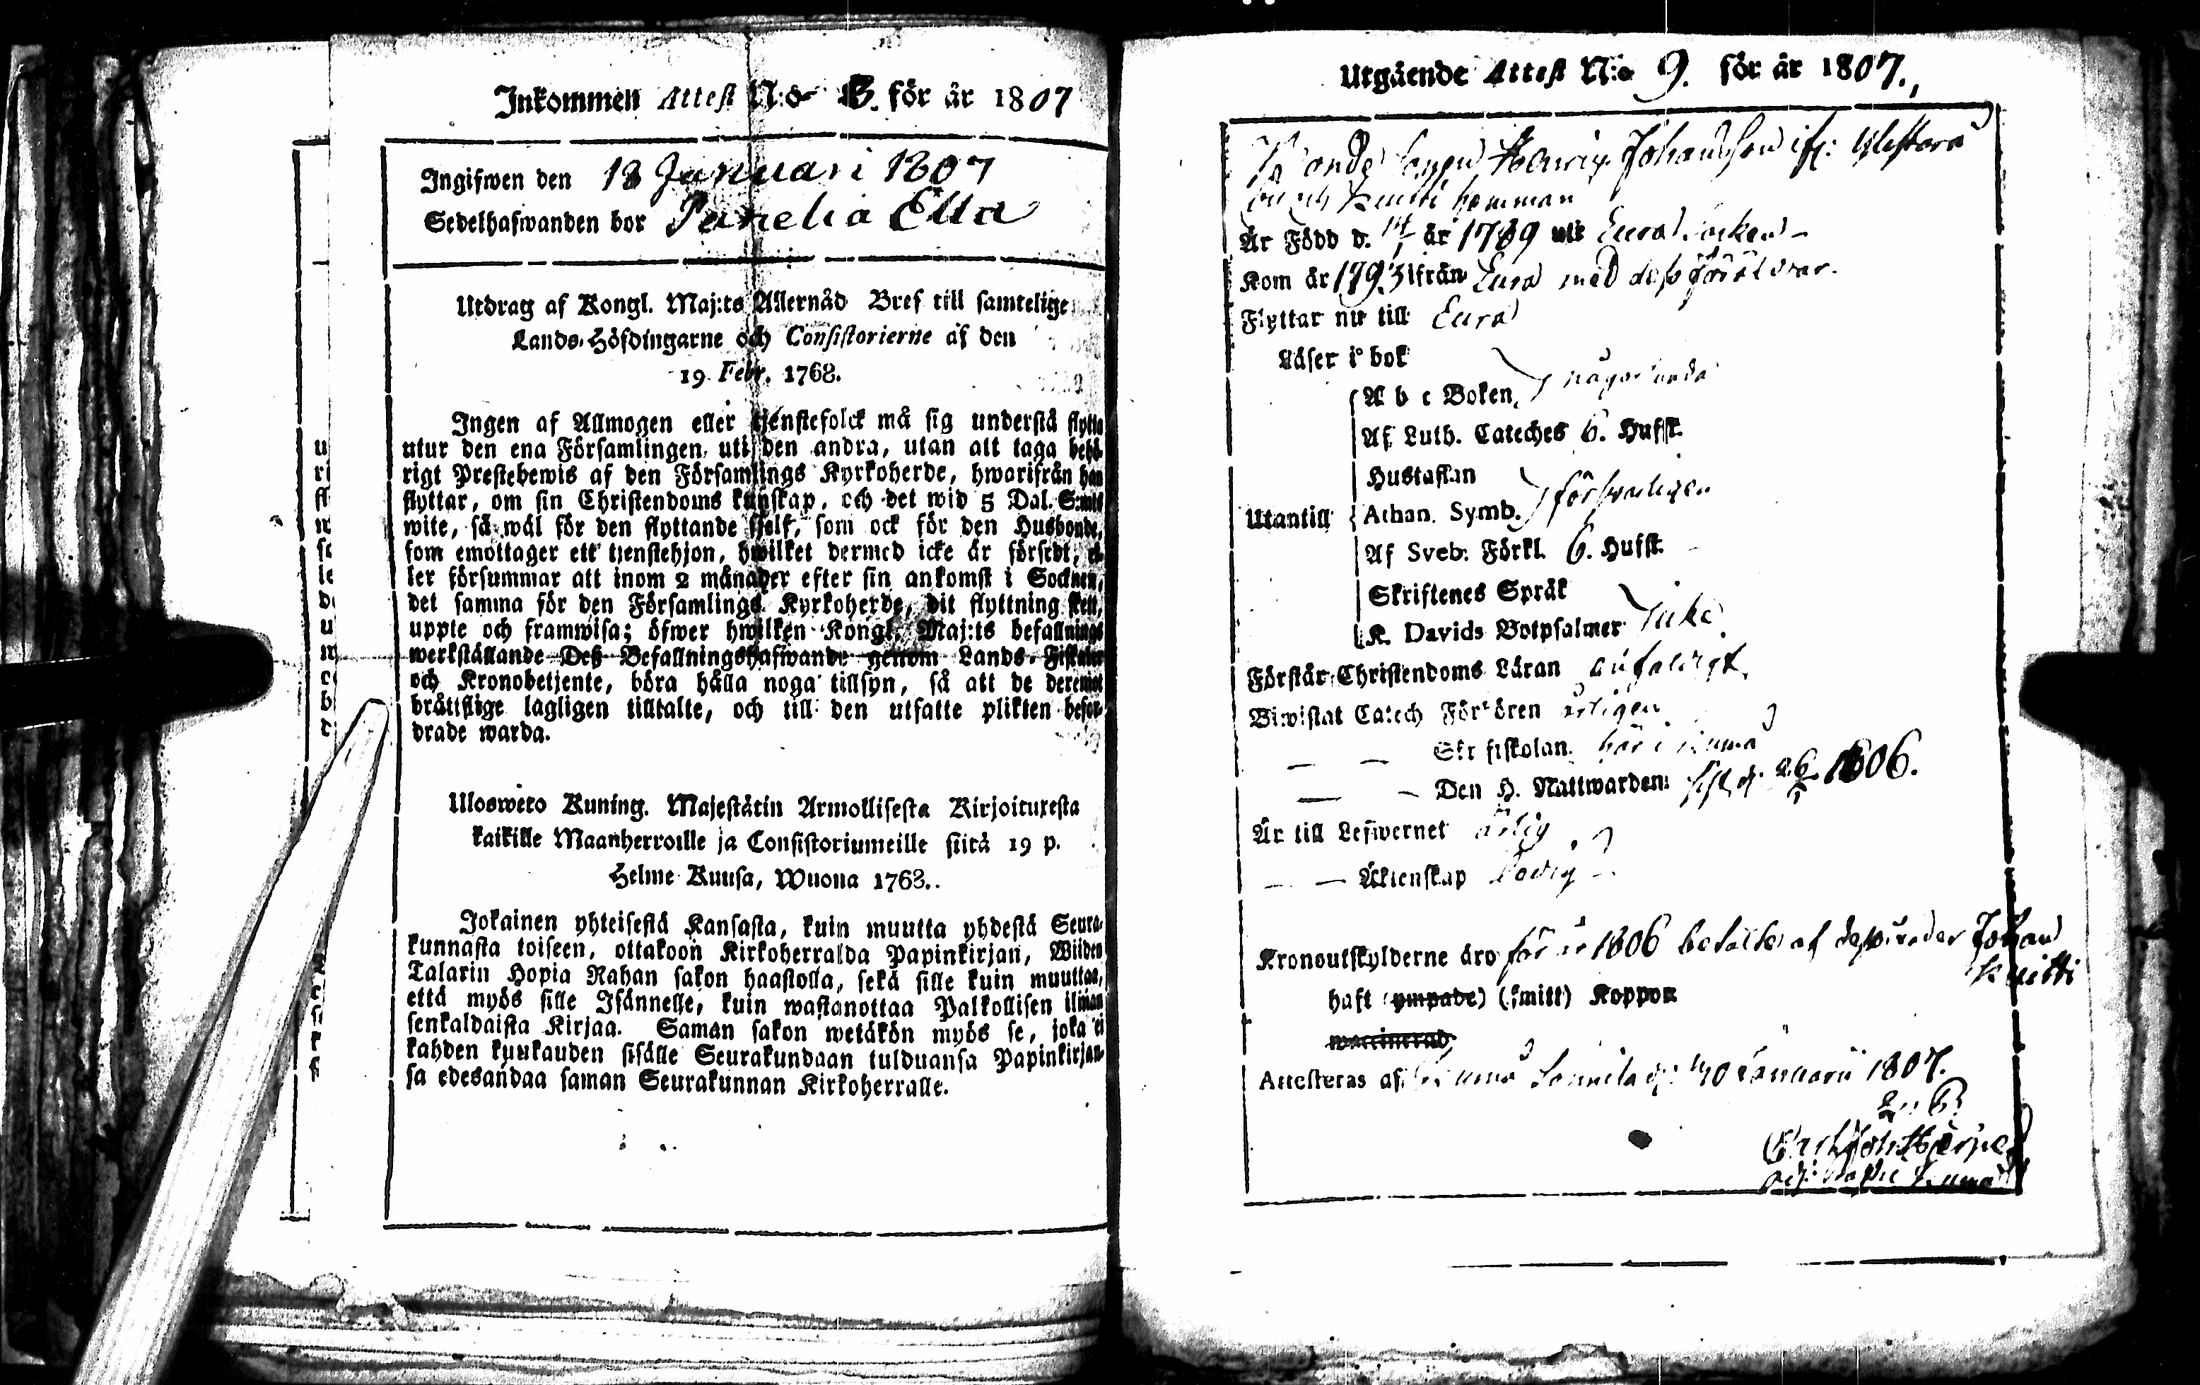 Inkommen Attest N:o 13. för år 1807
Ingifwen den 18 Januari 1807
Sedelhafwanden bor Panelia Ella
Utdrag af Kongl. Maj:ts Allernåd Bref till samtelige
Lands-Höfdingarne och Consistorierne af den
19 Febr. 1768.
Ingen af Allmogen eller tjenstefolck må sig understå flytta
utur den ena Församlingen uti den andra, utan att taga behö-
rigt Prestebewis af den Församlings Kyrkoherde, hwarifrån han
flyttar, om sin Christendoms kunskap, och det wid 5 Dal. S:mts
wite, så wäl för den flyttande sjelf, som ock för den Husbonde,
som emottager ett tjenstehjon, hwilket dermed icke är försedt, el-
ler försummar att inom 2 månader efter sin ankomst i Socknen,
det samma för den Församlings Kyrkoherde, dit flyttning sken,
uppte och framwisa; öfwer hwilken Kongl. Maj:ts befallnings
werkställande Deß Befallningshafwande genom Lands-Fiskaler
och Kronobetjente, böra hålla noga tillsyn, så att de deremot
bråttslige lagligen tilltalte, och till den utsatte plikten befor-
drade warda.
Uloswеto Kuning. Majestätin Armollisesta Kirjoituxesta
kaikille Maanherroille ja Consistoriumeille siitä 19 p.
Helme Kuusa, Wuona 1768.
Jokainen yhteisestä Kansasta, kuin muutta yhdestä Seura-
kunnasta toiseen, ottakoon Kirkoherralda Papinkirjan, Wiiden
Talarin Hopia Rahan sakon haastolla, sekä sille kuin muuttaa,
että myös sille Isännelle, kuin wastanottaa Palkollisen ilman
senkaldaista Kirjaa. Saman sakon wetäkön myös se, joka ei
kahden kuukauden sisälle Seurakundaan tulduansa Papinkirjan-
sa edesandaa saman Seurakunnan Kirkoherralle.
Utgående Attest N:o 9. för år 1807.
Henrix Johansson ifr:
Knitti hemman
Är Född d. år 1789 uti Eura Socken
Kom år 1793 ifrån Eura med deß föräldrar.
Flyttar nu till Eura
Läser i bok
A b c Boken någorlunda
Af Luth. Cateches 6. Hufst.
Hustaflan
Utantill
Athan. Symb. försvarligen
Af Sveb. Förkl. 6. Hufst.
Skriftenes Språk
K. Davids Botpsalmer icke
Förstår Christendoms Läran enfaldigt.
Biwistat Catech Förhören årligen
— — Skriftskolan här i
— — Den H. Nattwarden 1806.
Är till Lefwernet ärlig
— — Äktenskap ledig
Kronoutskylderne äro för år 1806 betalte af Johan
Knitti
haft (ympade) (smitt) Koppor
waccinerad
Attesteras af Sonnila Januarii 1807.